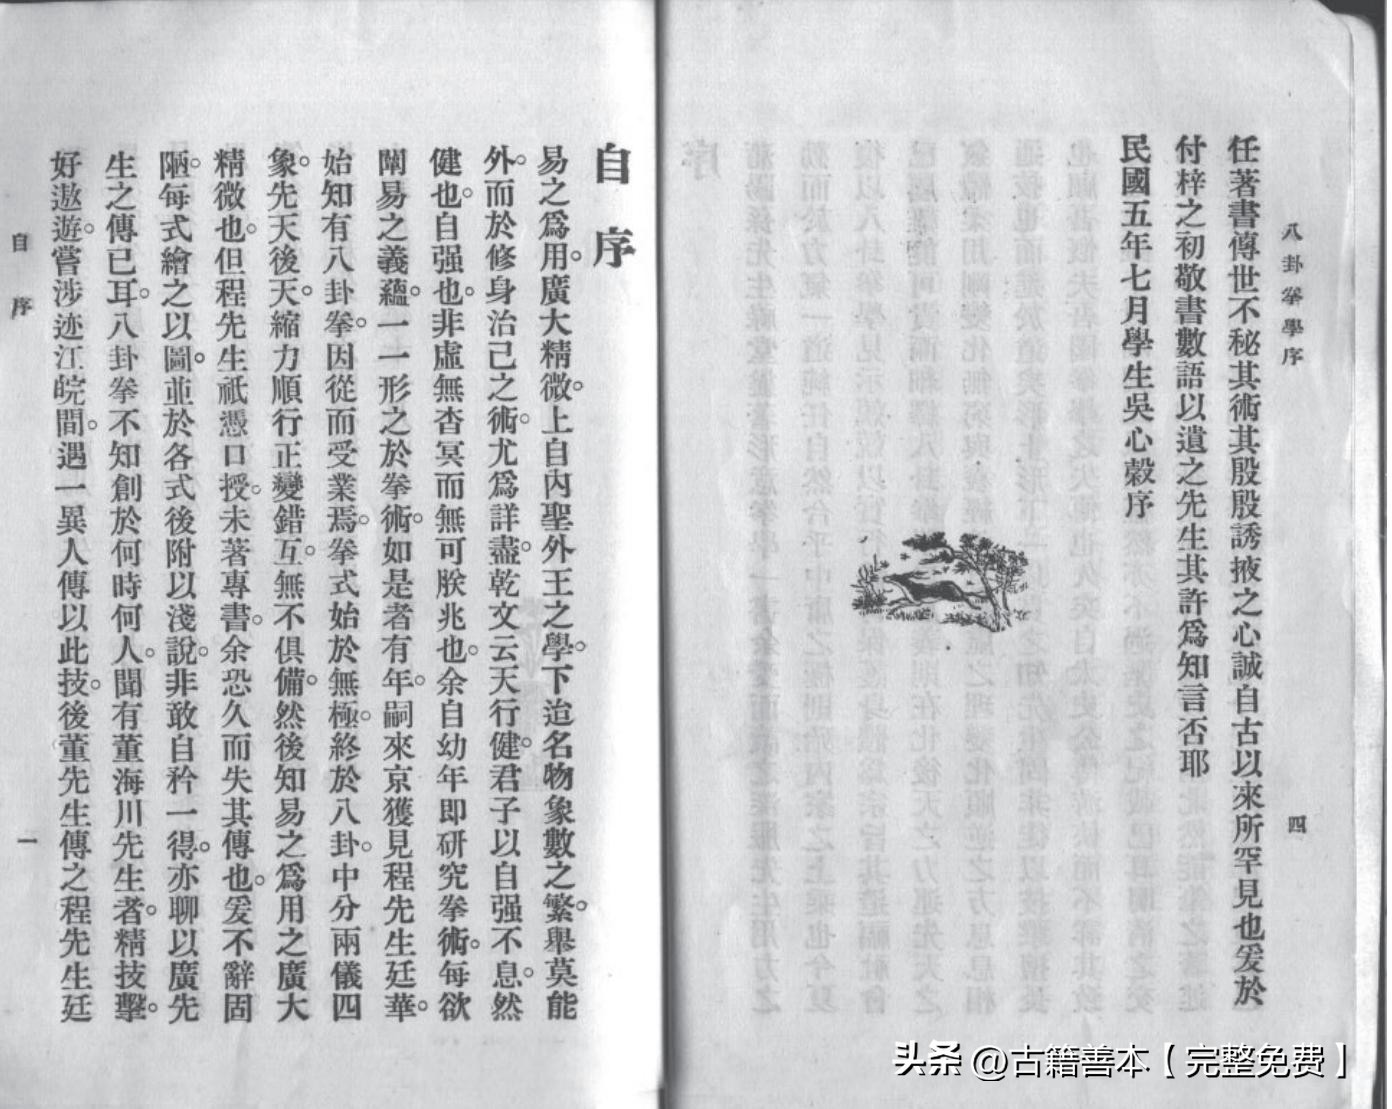 八卦拳學序
任著書傳世不秘其術其殷殷誘掖之心誠自古以來所罕見也爰於
付梓之初敬書數語以遺之先生其許爲知言否耶
民國五年七月學生吳心穀序
四
自序
易之爲用。廣大精微。上自內聖外王之學。下迨名物象數之繁。舉莫能
外。而於修身治己之術。尤爲詳盡。乾文云天行健。君子以自强不息。然
健也。自强也。非虛無杳冥而無可朕兆也。余自幼年即研究拳術。每欲
闡易之義蘊。一一形之於拳術。如是者有年。嗣來京獲見程先生廷華。
始知有八卦拳。因從而受業焉。拳式始於無極。終於八卦。中分兩儀四
象。先天後天。縮力順行。正變錯互。無不俱備。然後知易之爲用之廣大
精微也。但程先生祇憑口授。未著專書。余恐久而失其傳也。爰不辭固
陋。每式繪之以圖。並於各式後附以淺說。非敢自矜一得。亦聊以廣先
生之傳已耳。八卦拳不知創於何時何人。聞有董海川先生者。精技擊。
好遨遊。嘗涉迹江皖間。遇一異人傳以此技。後董先生傳之程先生廷
自序
一
头条 @古籍善本【完整免费】